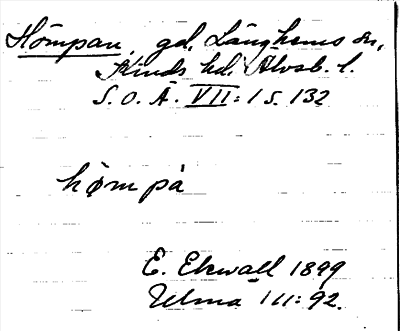 Hömpan, gd. Länghems sn,
Kinds hd. Älvsb. l.
S. O. Ä. VII: 1 s. 132
hømpa
E. Ekwall 1899
Ulma 111: 92.